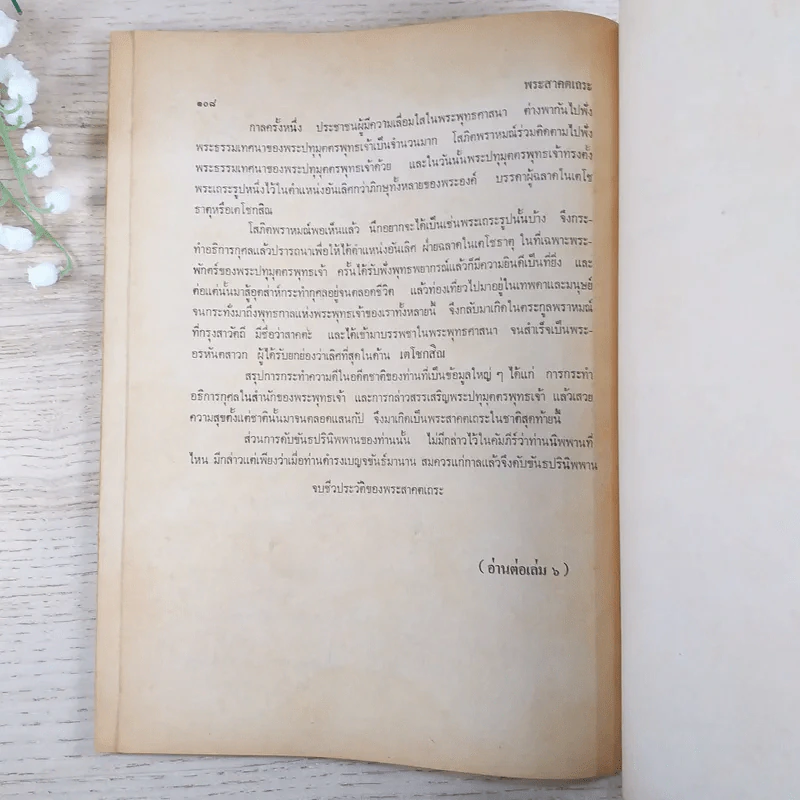 พระสาคตเถระ
๑๐๘
กาลครั้งหนึ่ง ประชาชนผู้มีความเลื่อมใสในพระพุทธศาสนา ต่างพากันไปฟัง
พระธรรมเทศนาของพระปทุมุตตรพุทธเจ้าเป็นจำนวนมาก โสภิตพราหมณ์ร่วมคิดตามไปฟัง
พระธรรมเทศนาของพระปทุมุตตรพุทธเจ้าด้วย และในวันนั้นพระปทุมุตตรพุทธเจ้าทรงตั้ง
พระเถระรูปหนึ่งไว้ในตำแหน่งอันเลิศกว่าภิกษุทั้งหลายของพระองค์ บรรดาผู้ฉลาดในเตโช
ธาตุหรือเตโชกสิณ
โสภิตพราหมณ์พอเห็นแล้ว นึกอยากจะได้เป็นเช่นพระเถระรูปนั้นบ้าง จึงกระ-
ทำอธิการกุศลแล้วปรารถนาเพื่อให้ได้ตำแหน่งอันเลิศ ฝ่ายฉลาดในเตโชธาตุ ในที่เฉพาะพระ-
พักตร์ของพระปทุมุตตรพุทธเจ้า ครั้นได้รับฟังพุทธพยากรณ์แล้วก็มีความยินดีเป็นที่ยิ่ง และ
ต่อแต่นั้นมาสู้อุตส่าห์กระทำกุศลอยู่จนตลอดชีวิต แล้วท่องเที่ยวไปมาอยู่ในเทพดาและมนุษย์
จนกระทั่งมาถึงพุทธกาลแห่งพระพุทธเจ้าของเราทั้งหลายนี้ จึงกลับมาเกิดในตระกูลพราหมณ์
ที่กรุงสาวัตถี มีชื่อว่าสาคตะ และได้เข้ามาบรรพชาในพระพุทธศาสนา จนสำเร็จเป็นพระ-
อรหันตสาวก ผู้ได้รับยกย่องว่าเลิศที่สุดในด้าน เตโชกสิณ
สรุปการกระทำความดีในอดีตชาติของท่านที่เป็นข้อมูลใหญ่ ๆ ได้แก่ การกระทำ
อธิการกุศลในสำนักของพระพุทธเจ้า และการกล่าวสรรเสริญพระปทุมุตตรพุทธเจ้า แล้วเสวย
ความสุขตั้งแต่ชาตินั้นมาจนตลอดแสนกัป จึงมาเกิดเป็นพระสาคตเถระในชาติสุดท้ายนี้
ส่วนการดับขันธปรินิพพานของท่านนั้น ไม่มีกล่าวไว้ในคัมภีร์ว่าท่านนิพพานที่
ไหน มีกล่าวแต่เพียงว่าเมื่อท่านดำรงเบญจขันธ์มานาน สมควรแก่กาลแล้วจึงดับขันธปรินิพพาน
จบชีวประวัติของพระสาคตเถระ
(อ่านต่อเล่ม ๖)